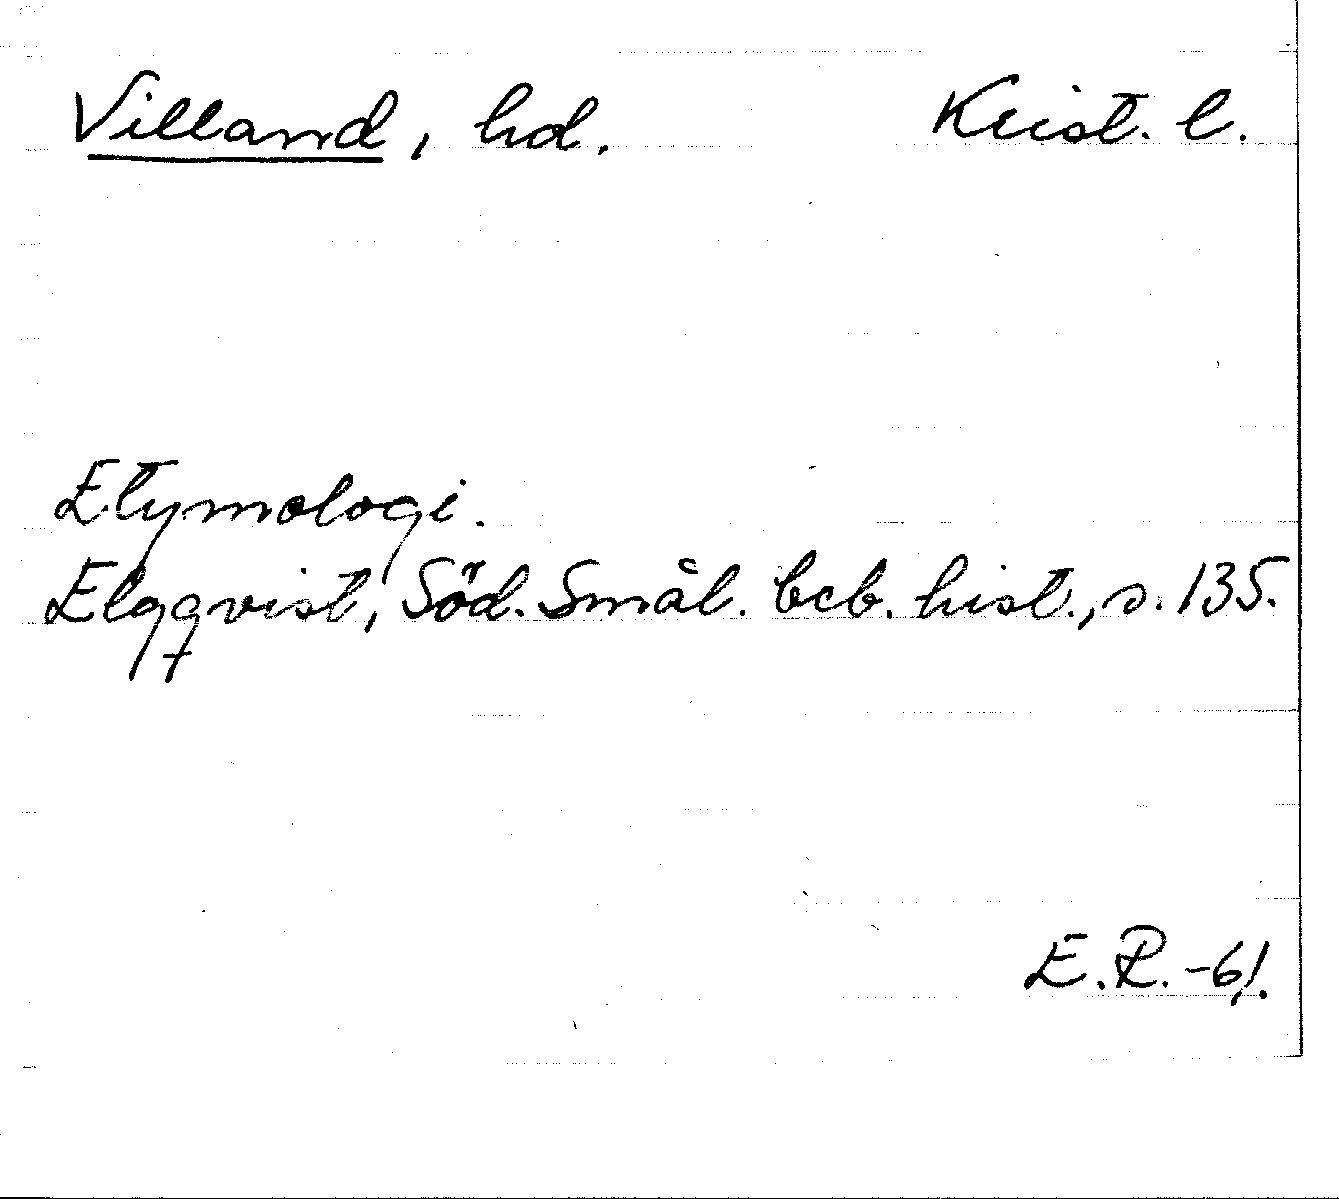 Villand, hd. Krist. l.
Etymologi.
Elgqvist, Söd. Smål. beb. hist., s. 135.
E.R. -61.